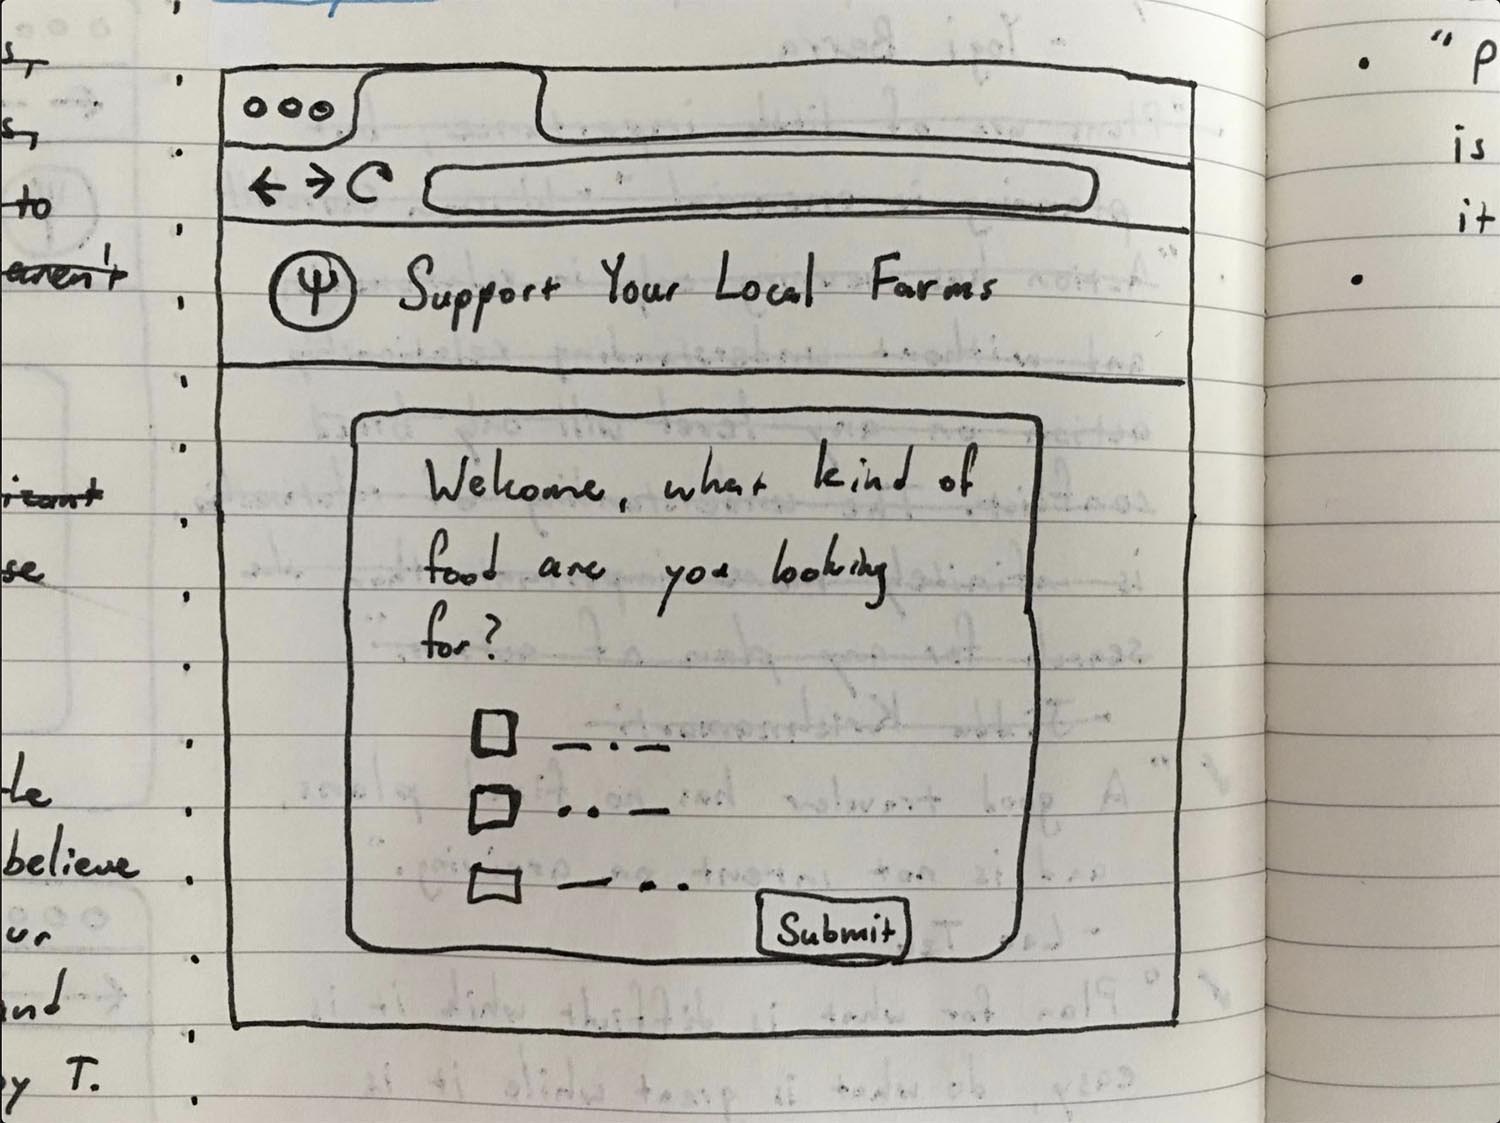 s,
s,
to
aren't
icant
se
le
believe
ur
and
by T.
Support Your Local Farms
Welcome, what kind of
food are you looking
for?
Submit
" P
is
it